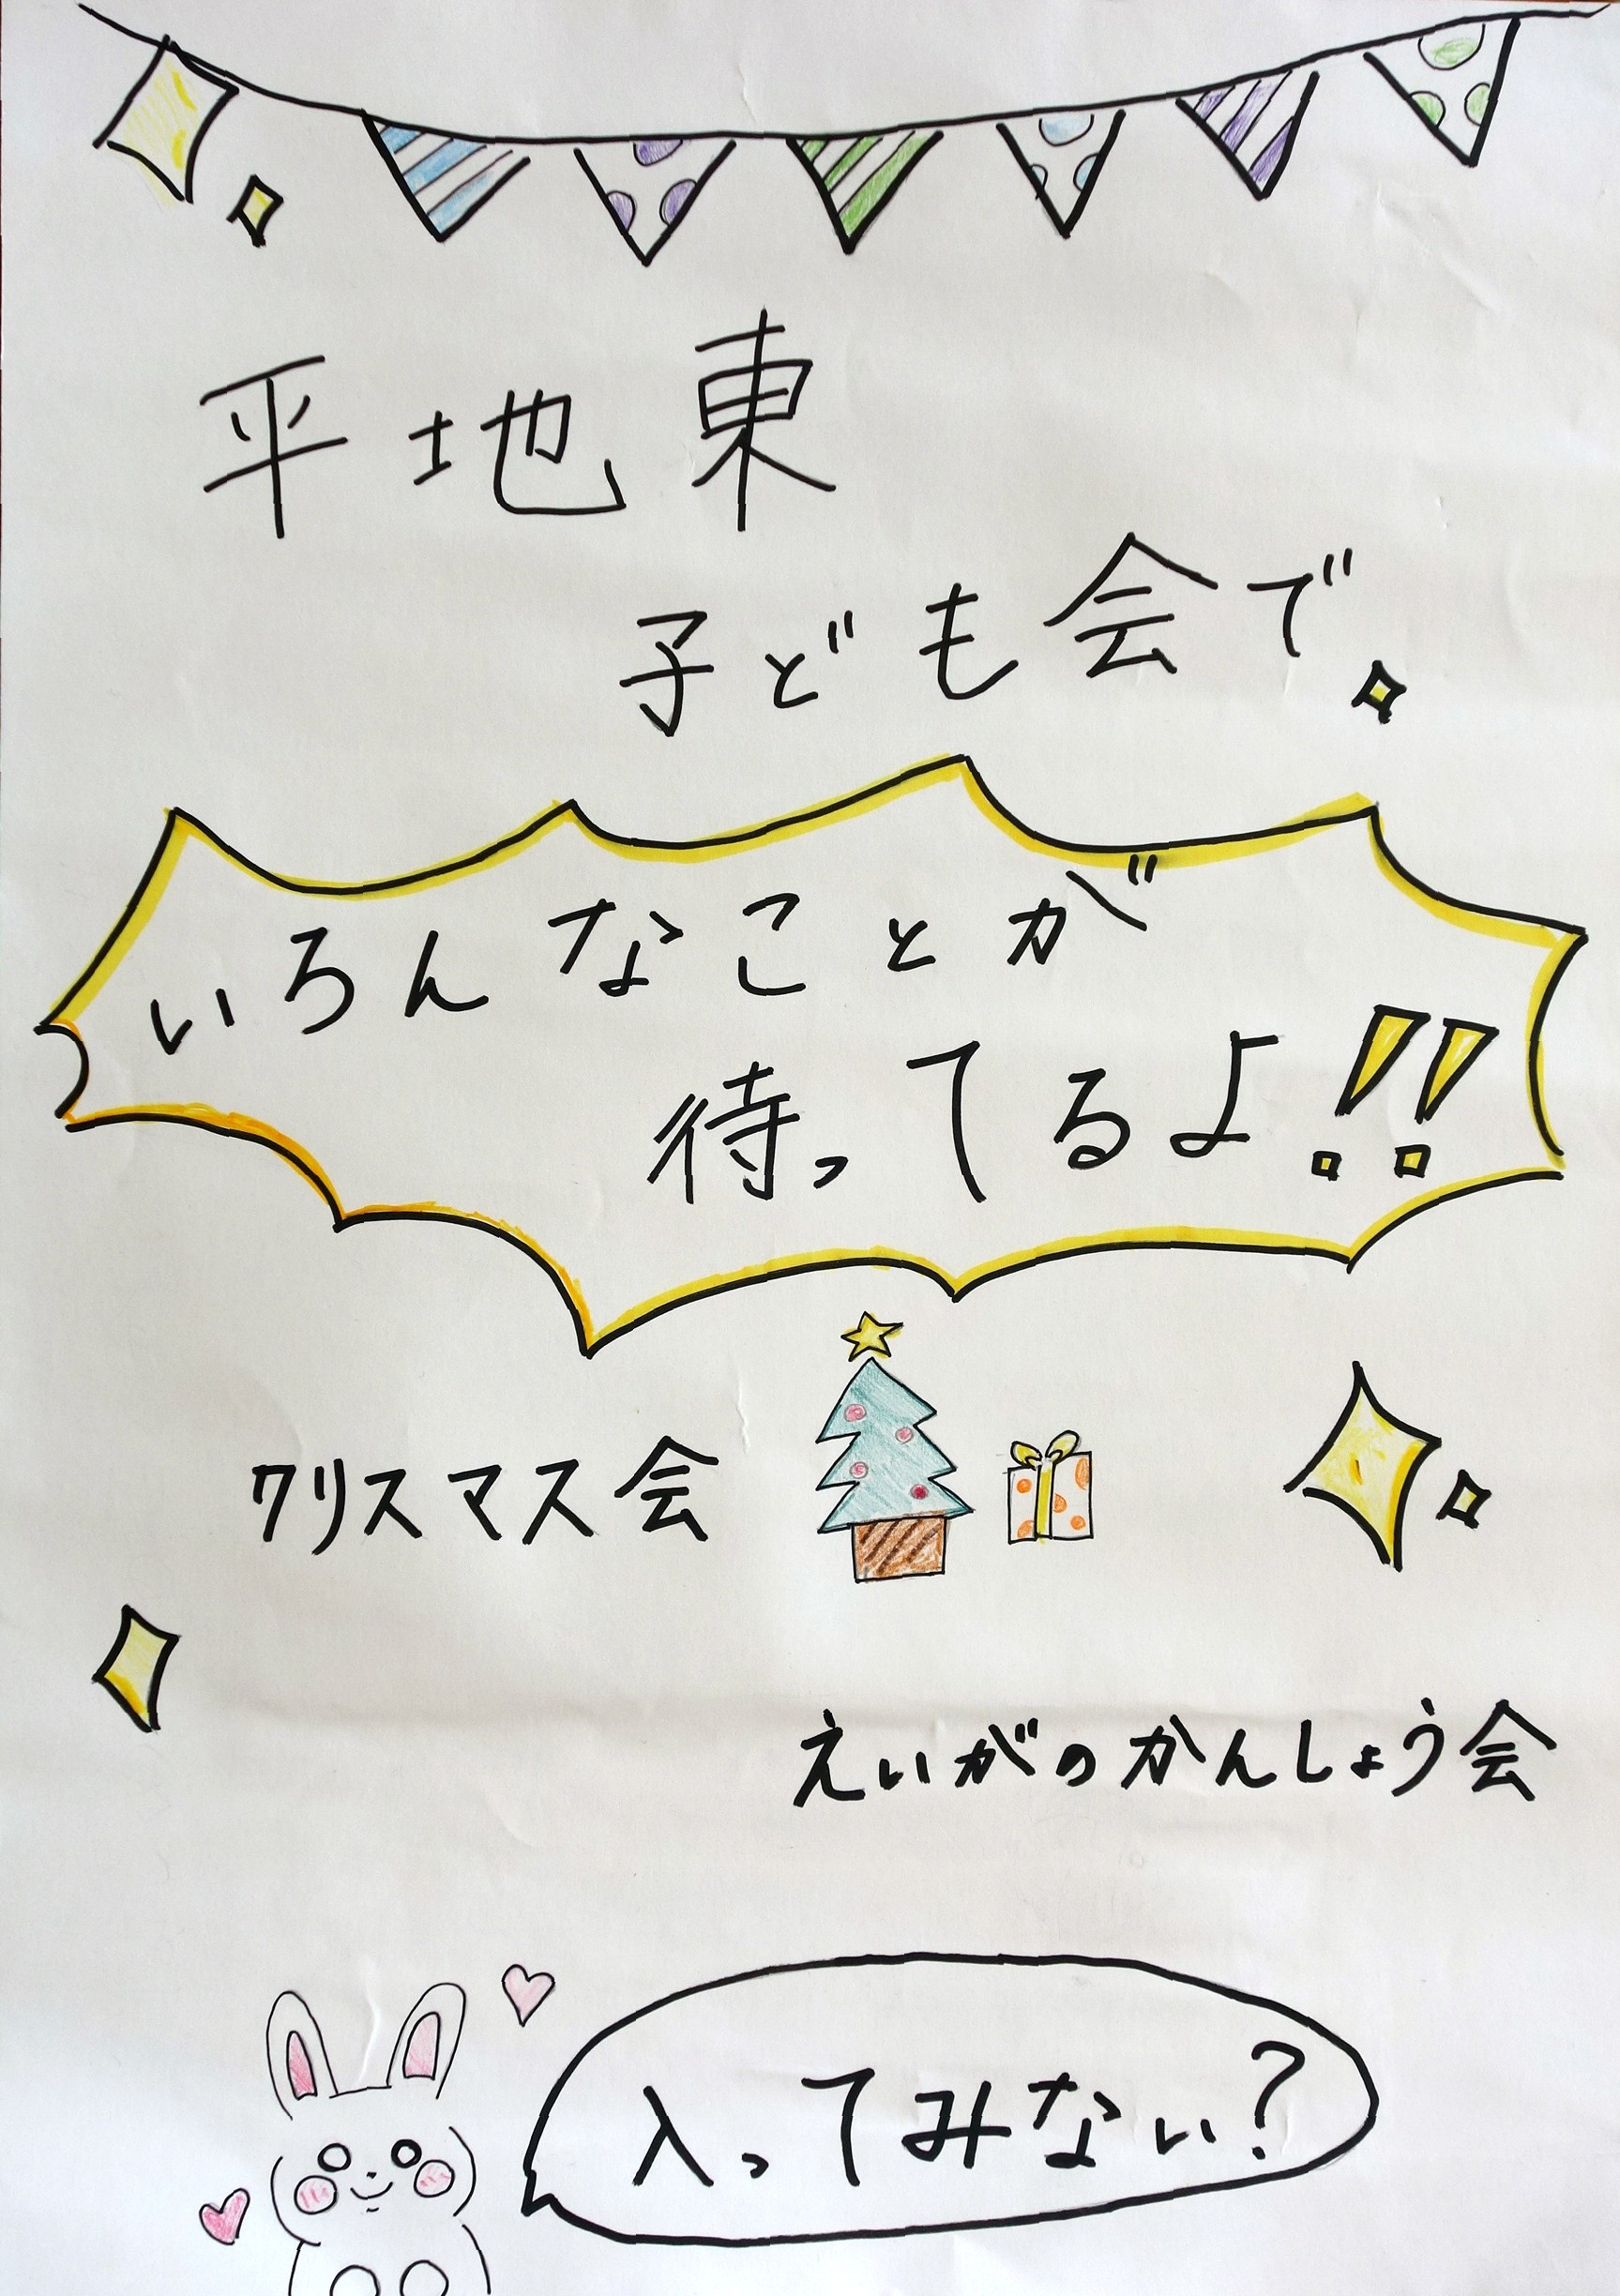 平地東
子ども会で
いろんなことが
待ってるよ!!
クリスマス会
えいがのかんしょう会
入ってみない?